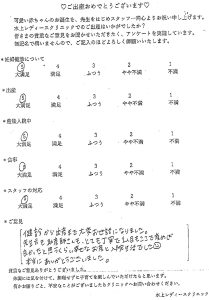 ♡ご出産おめでとうございます♡
可愛い赤ちゃんのお誕生を、先生をはじめスタッフ一同心よりお祝い申し上げます。
水上レディースクリニックでのご出産はいかがでしたか？
皆さまの貴重なご意見をお聞かせいただきたく、アンケートを実施しています。
無記名で伺いませんので、ご記入のほどよろしくお願いいたします。
*妊婦健診について
5 4 3 2 1
大満足 満足 ふつう やや不満 不満
*出産
5 4 3 2 1
大満足 満足 ふつう やや不満 不満
*産後入院中
5 4 3 2 1
大満足 満足 ふつう やや不満 不満
*食事
5 4 3 2 1
大満足 満足 ふつう やや不満 不満
*スタッフの対応
5 4 3 2 1
大満足 満足 ふつう やや不満 不満
*ご意見
健診から出産まで大変お世話になりました。
先生も助産師さんも、とても丁寧で
良かったと思うくらい、幸せなお産と入院生活でした
本当にありがとうございました。
貴重なご意見ありがとうございました。
水上レディースクリニック